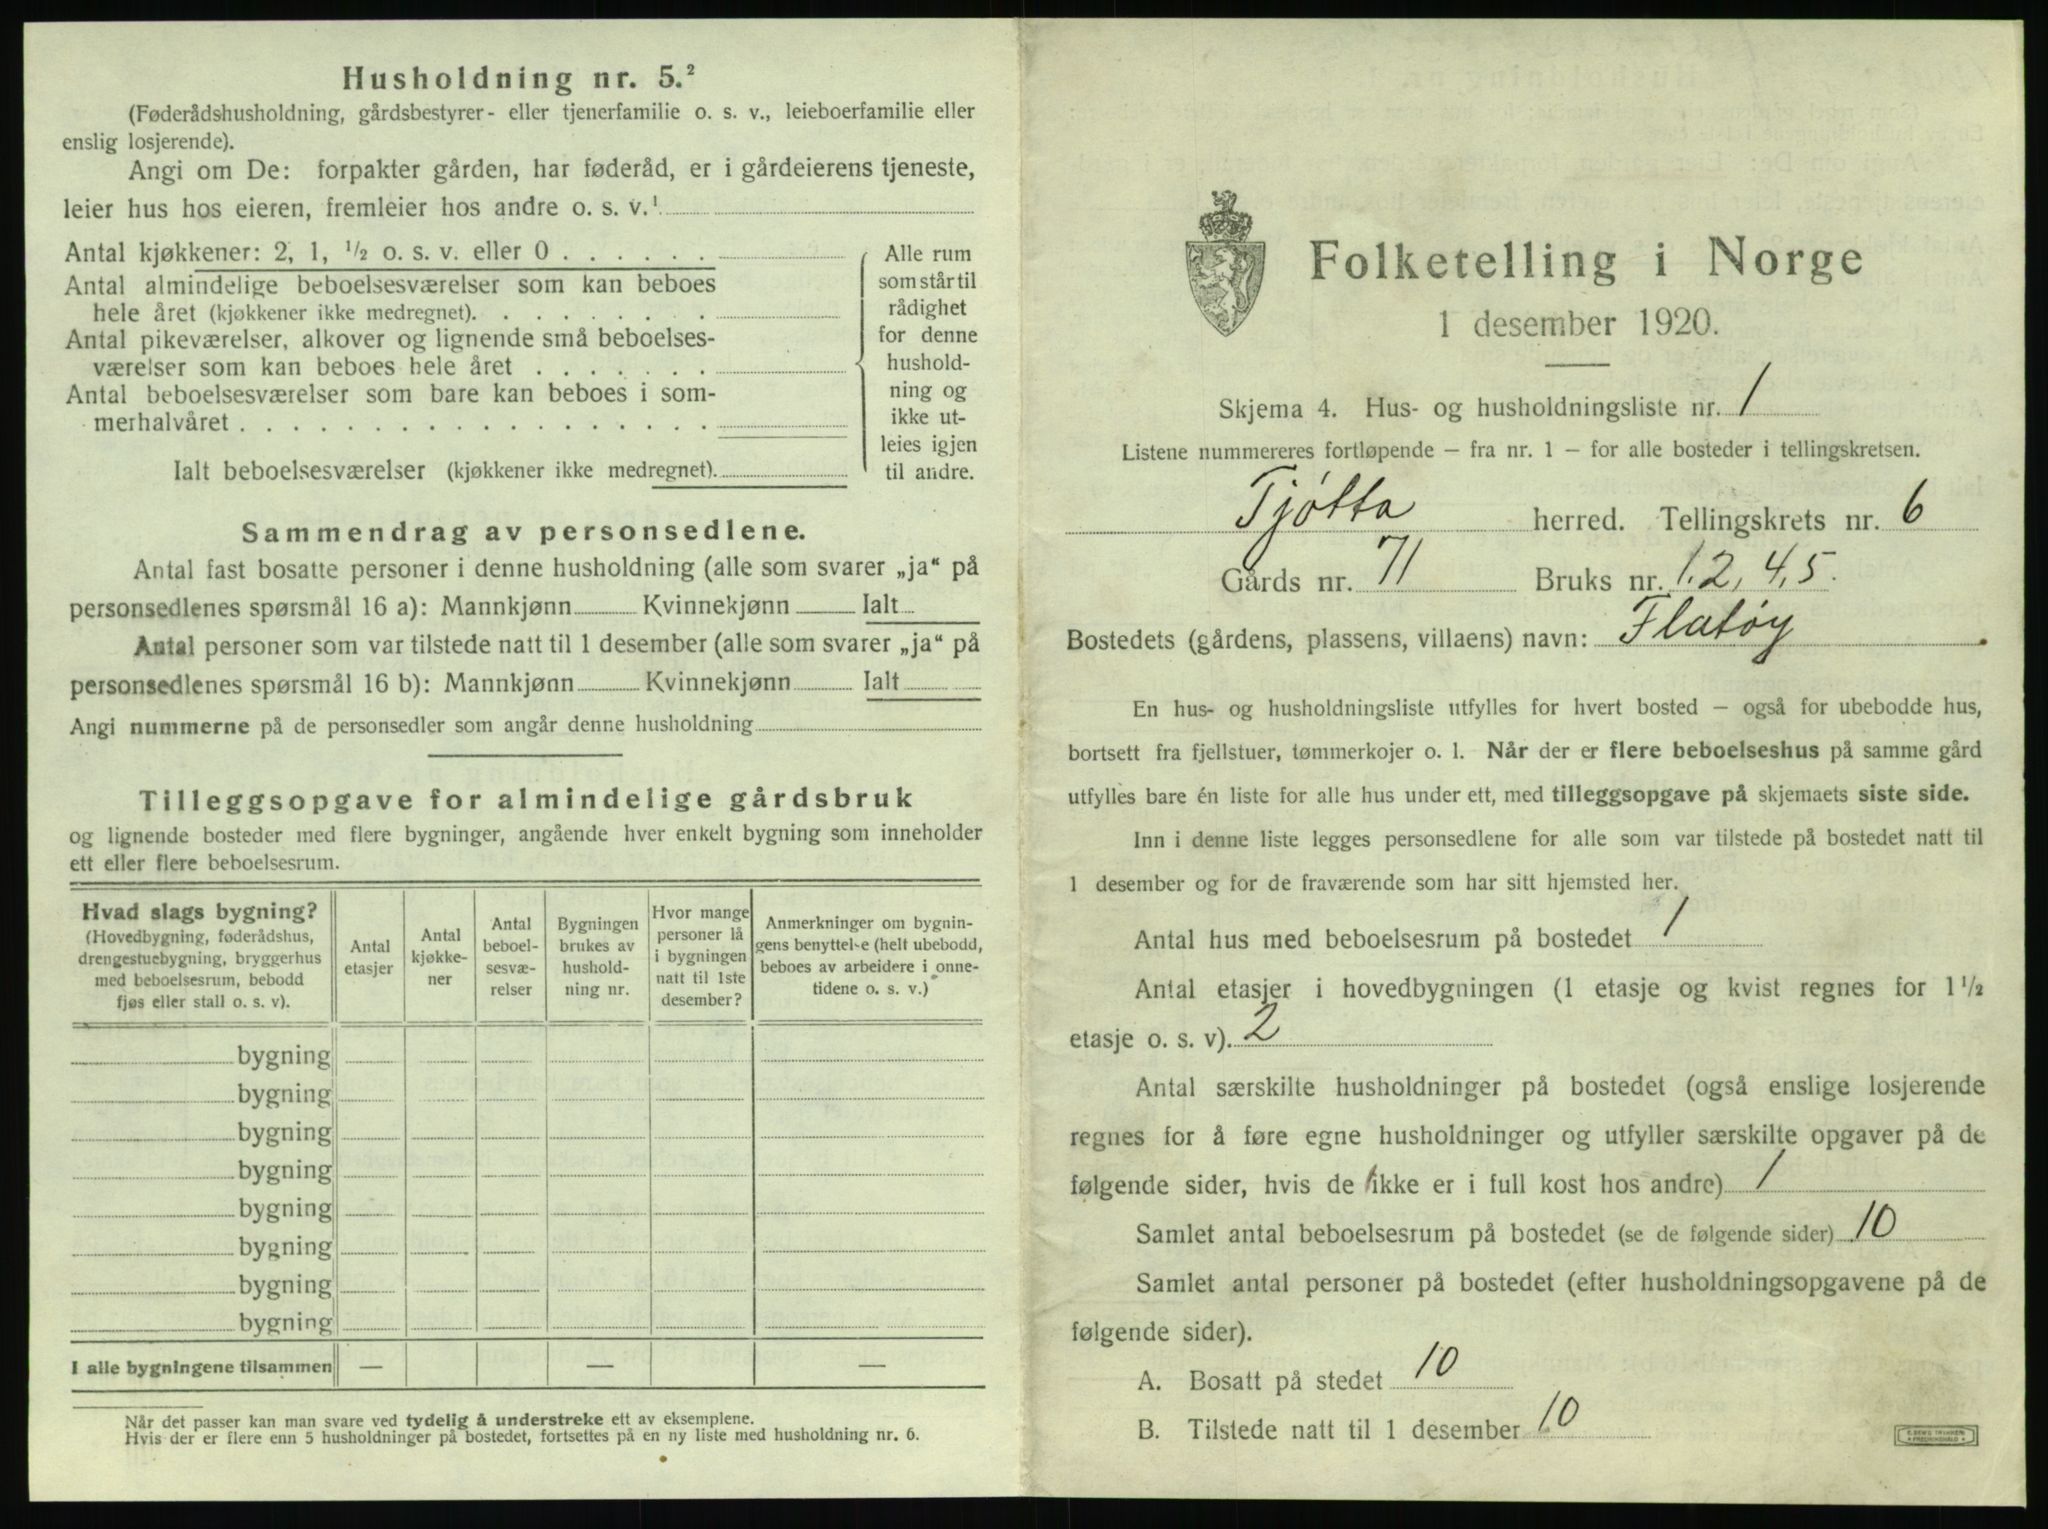 Husholdning nr. 5.²
(Føderådshusholdning, gårdsbestyrer- eller tjenerfamilie o. s. v., leieboerfamilie eller
enslig losjerende).
Angi om De: forpakter gården, har føderåd, er i gårdeierens tjeneste,
leier hus hos eieren, fremleier hos andre o. s. v.¹
Antal kjøkkener: 2, 1, ½ o. s. v. eller 0 . . . . . .
Antal almindelige beboelsesværelser som kan beboes
hele året (kjøkkener ikke medregnet). . . . . . . .
Antal pikeværelser, alkover og lignende små beboelses-
værelser som kan beboes hele året . . . . . . .
Antal beboelsesværelser som bare kan beboes i som-
merhalvåret . . . . . . . . . . . . . . . . . .
Ialt beboelsesværelser (kjøkkener ikke medregnet).
Alle rum
som står til
rådighet
for denne
hushold-
ning og
ikke ut-
leies igjen
til andre.
Sammendrag av personsedlene.
Antal fast bosatte personer i denne husholdning (alle som svarer „ja“ på
personsedlenes spørsmål 16 a): Mannkjønn Kvinnekjønn Ialt
Antal personer som var tilstede natt til 1 desember (alle som svarer „ja“ på
personsedlenes spørsmål 16 b): Mannkjønn Kvinnekjønn Ialt
Angi nummerne på de personsedler som angår denne husholdning
Tilleggsopgave for almindelige gårdsbruk
og lignende bosteder med flere bygninger, angående hver enkelt bygning som inneholder
ett eller flere beboelsesrum.
Hvad slags bygning?
(Hovedbygning, føderådshus,
drengestuebygning, bryggerhus
med beboelsesrum, bebodd
fjøs eller stall o. s. v).
Antal
etasjer
Antal
kjøkke-
ner
Antal
beboel-
sesvæ-
relser
Bygningen
brukes av
hushold-
ning nr.
Hvor mange
personer lå
i bygningen
natt til 1ste
desember?
Anmerkninger om bygnin-
gens benyttelse (helt ubebodd,
beboes av arbeidere i onne-
tidene o. s. v.)
bygning
bygning
bygning
bygning
bygning
bygning
bygning
bygning
I alle bygningene tilsammen — — —
Når det passer kan man svare ved tydelig å understreke ett av eksemplene.
Hvis der er flere enn 5 husholdninger på bostedet, fortsettes på en ny liste med husholdning nr. 6.
Folketelling i Norge
1 desember 1920.
Skjema 4. Hus- og husholdningsliste nr. 1
Listene nummereres fortløpende – fra nr. 1 – for alle bosteder i tellingskretsen.
Tjøtta herred. Tellingskrets nr. 6
Gårds nr. 71 Bruks nr. 1, 2, 4, 5.
Bostedets (gårdens, plassens, villaens) navn: Flatøy
En hus- og husholdningsliste utfylles for hvert bosted – også for ubebodde hus,
bortsett fra fjellstuer, tømmerkojer o. l. Når der er flere beboelseshus på samme gård
utfylles bare én liste for alle hus under ett, med tilleggsopgave på skjemaets siste side.
Inn i denne liste legges personsedlene for alle som var tilstede på bostedet natt til
1 desember og for de fraværende som har sitt hjemsted her.
Antal hus med beboelsesrum på bostedet 1
Antal etasjer i hovedbygningen (1 etasje og kvist regnes for 1½
etasje o. s. v). 2
Antal særskilte husholdninger på bostedet (også enslige losjerende
regnes for å føre egne husholdninger og utfyller særskilte opgaver på de
følgende sider, hvis de ikke er i full kost hos andre) 1
Samlet antal beboelsesrum på bostedet (se de følgende sider) 10
Samlet antal personer på bostedet (efter husholdningsopgavene på de
følgende sider).
A. Bosatt på stedet 10
B. Tilstede natt til 1 desember 10